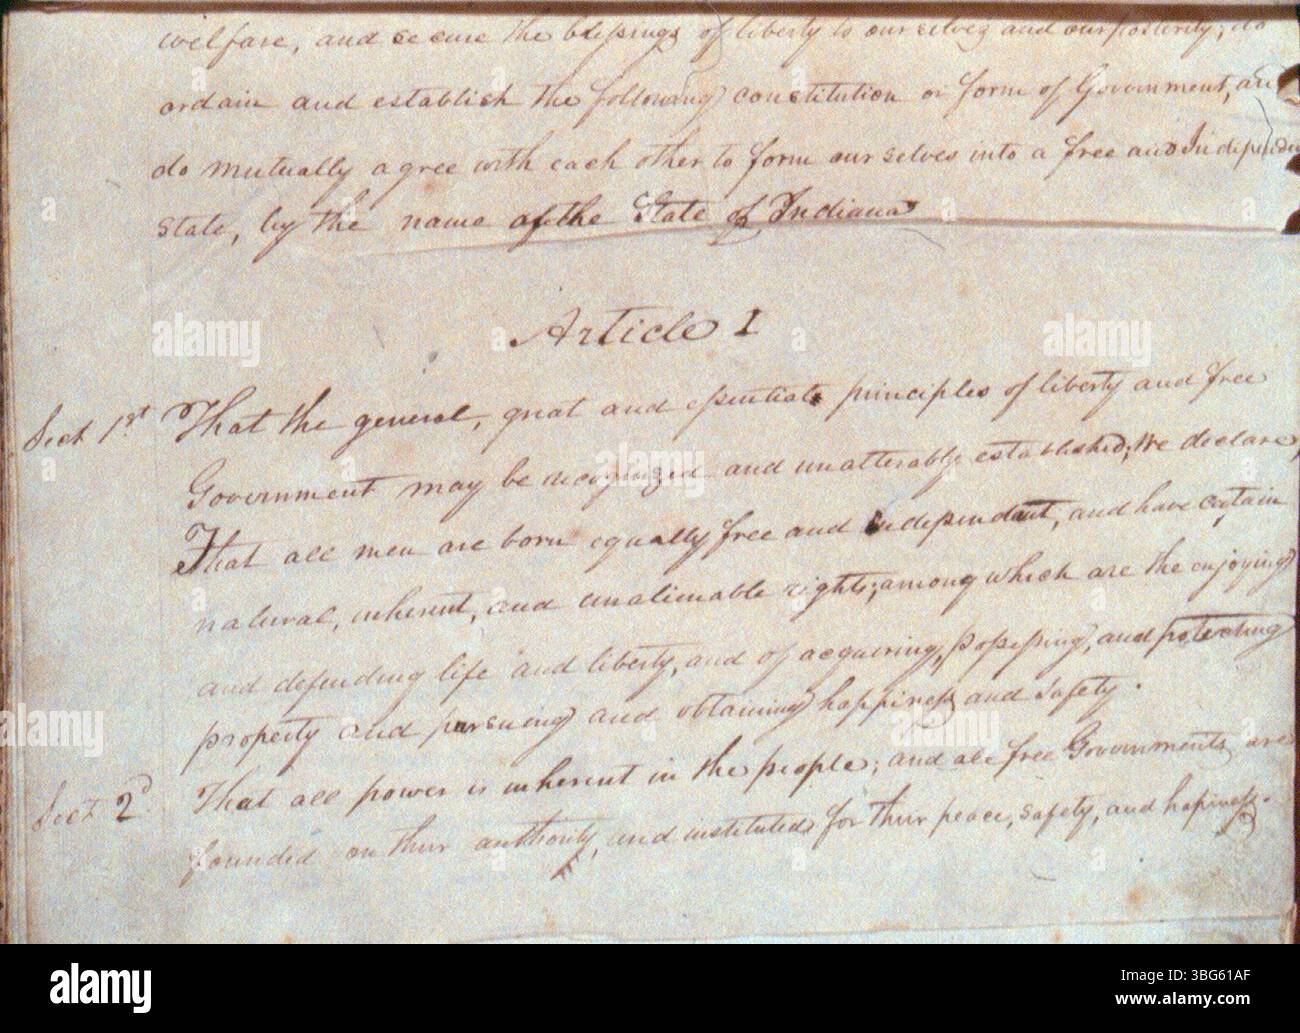 welfare, and secure the blessings of liberty to ourselves and our posterity; do
ordain and establish the following constitution or form of Government, and
do mutually agree with each other to form ourselves into a free and Independent
state, by the name of the State of Indiana
Article I
Sect 1st That the general, great and essential principles of liberty and free
Government may be recognized and unalterably established; We declare,
That all men are born equally free and independent, and have certain
natural, inherent, and unalienable rights; among which are the enjoying
and defending life and liberty, and of acquiring, possessing, and protecting
property and pursuing and obtaining happiness and safety.
Sect 2d That all power is inherent in the people; and all free Governments are
founded on their authority, and instituted for their peace, safety, and hapiness.
alamy
alamy
alamy
alamy
Image ID: 3BG61AF
www.alamy.com